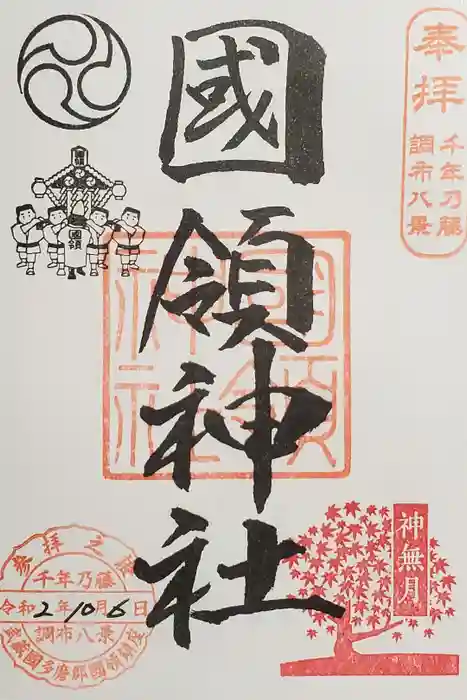 奉拝
千年乃藤
調布八景
國領神社
國領
國領
神社
神無月
参拝之証
千年乃藤
令和2年10月6日
調布八景
武蔵國多磨郡國領鎮座